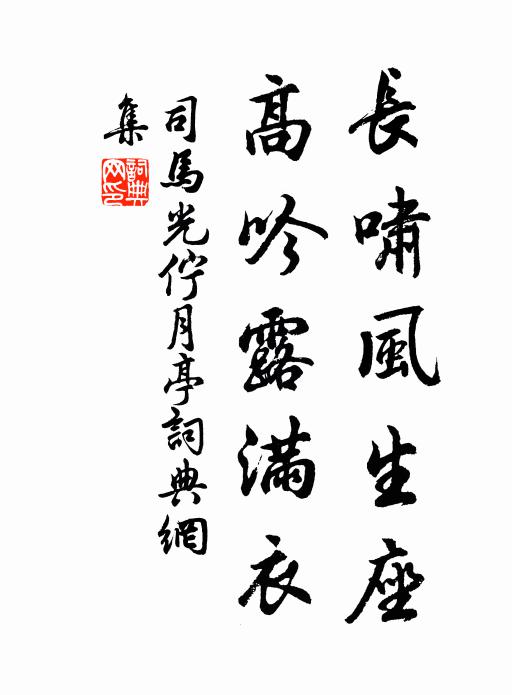 長嘯風生座
高吟露滿衣
司馬光佇月亭詞典網
集
詞典網印